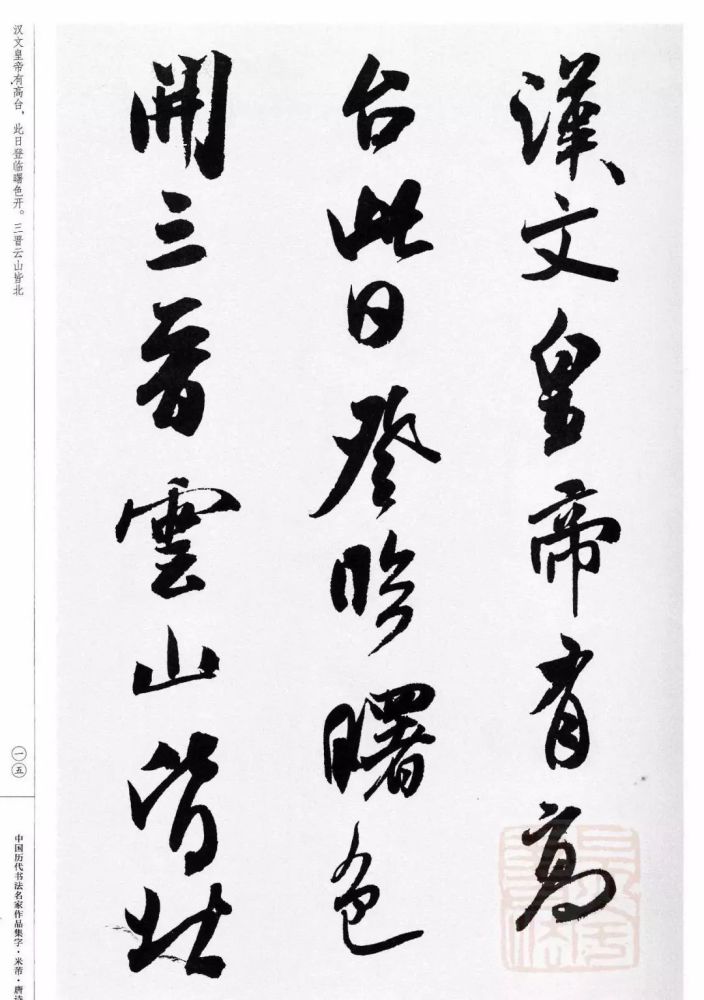 漢文皇帝有高
台此日登臨曙色
開三晉雲山皆北
汉文皇帝有高台，此日登临曙色开。三晋云山皆北
一五
中国历代书法名家作品集字·米芾·唐诗